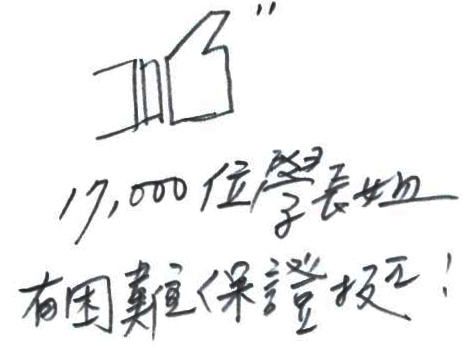 17,000位學長姐
有困難保證挺!